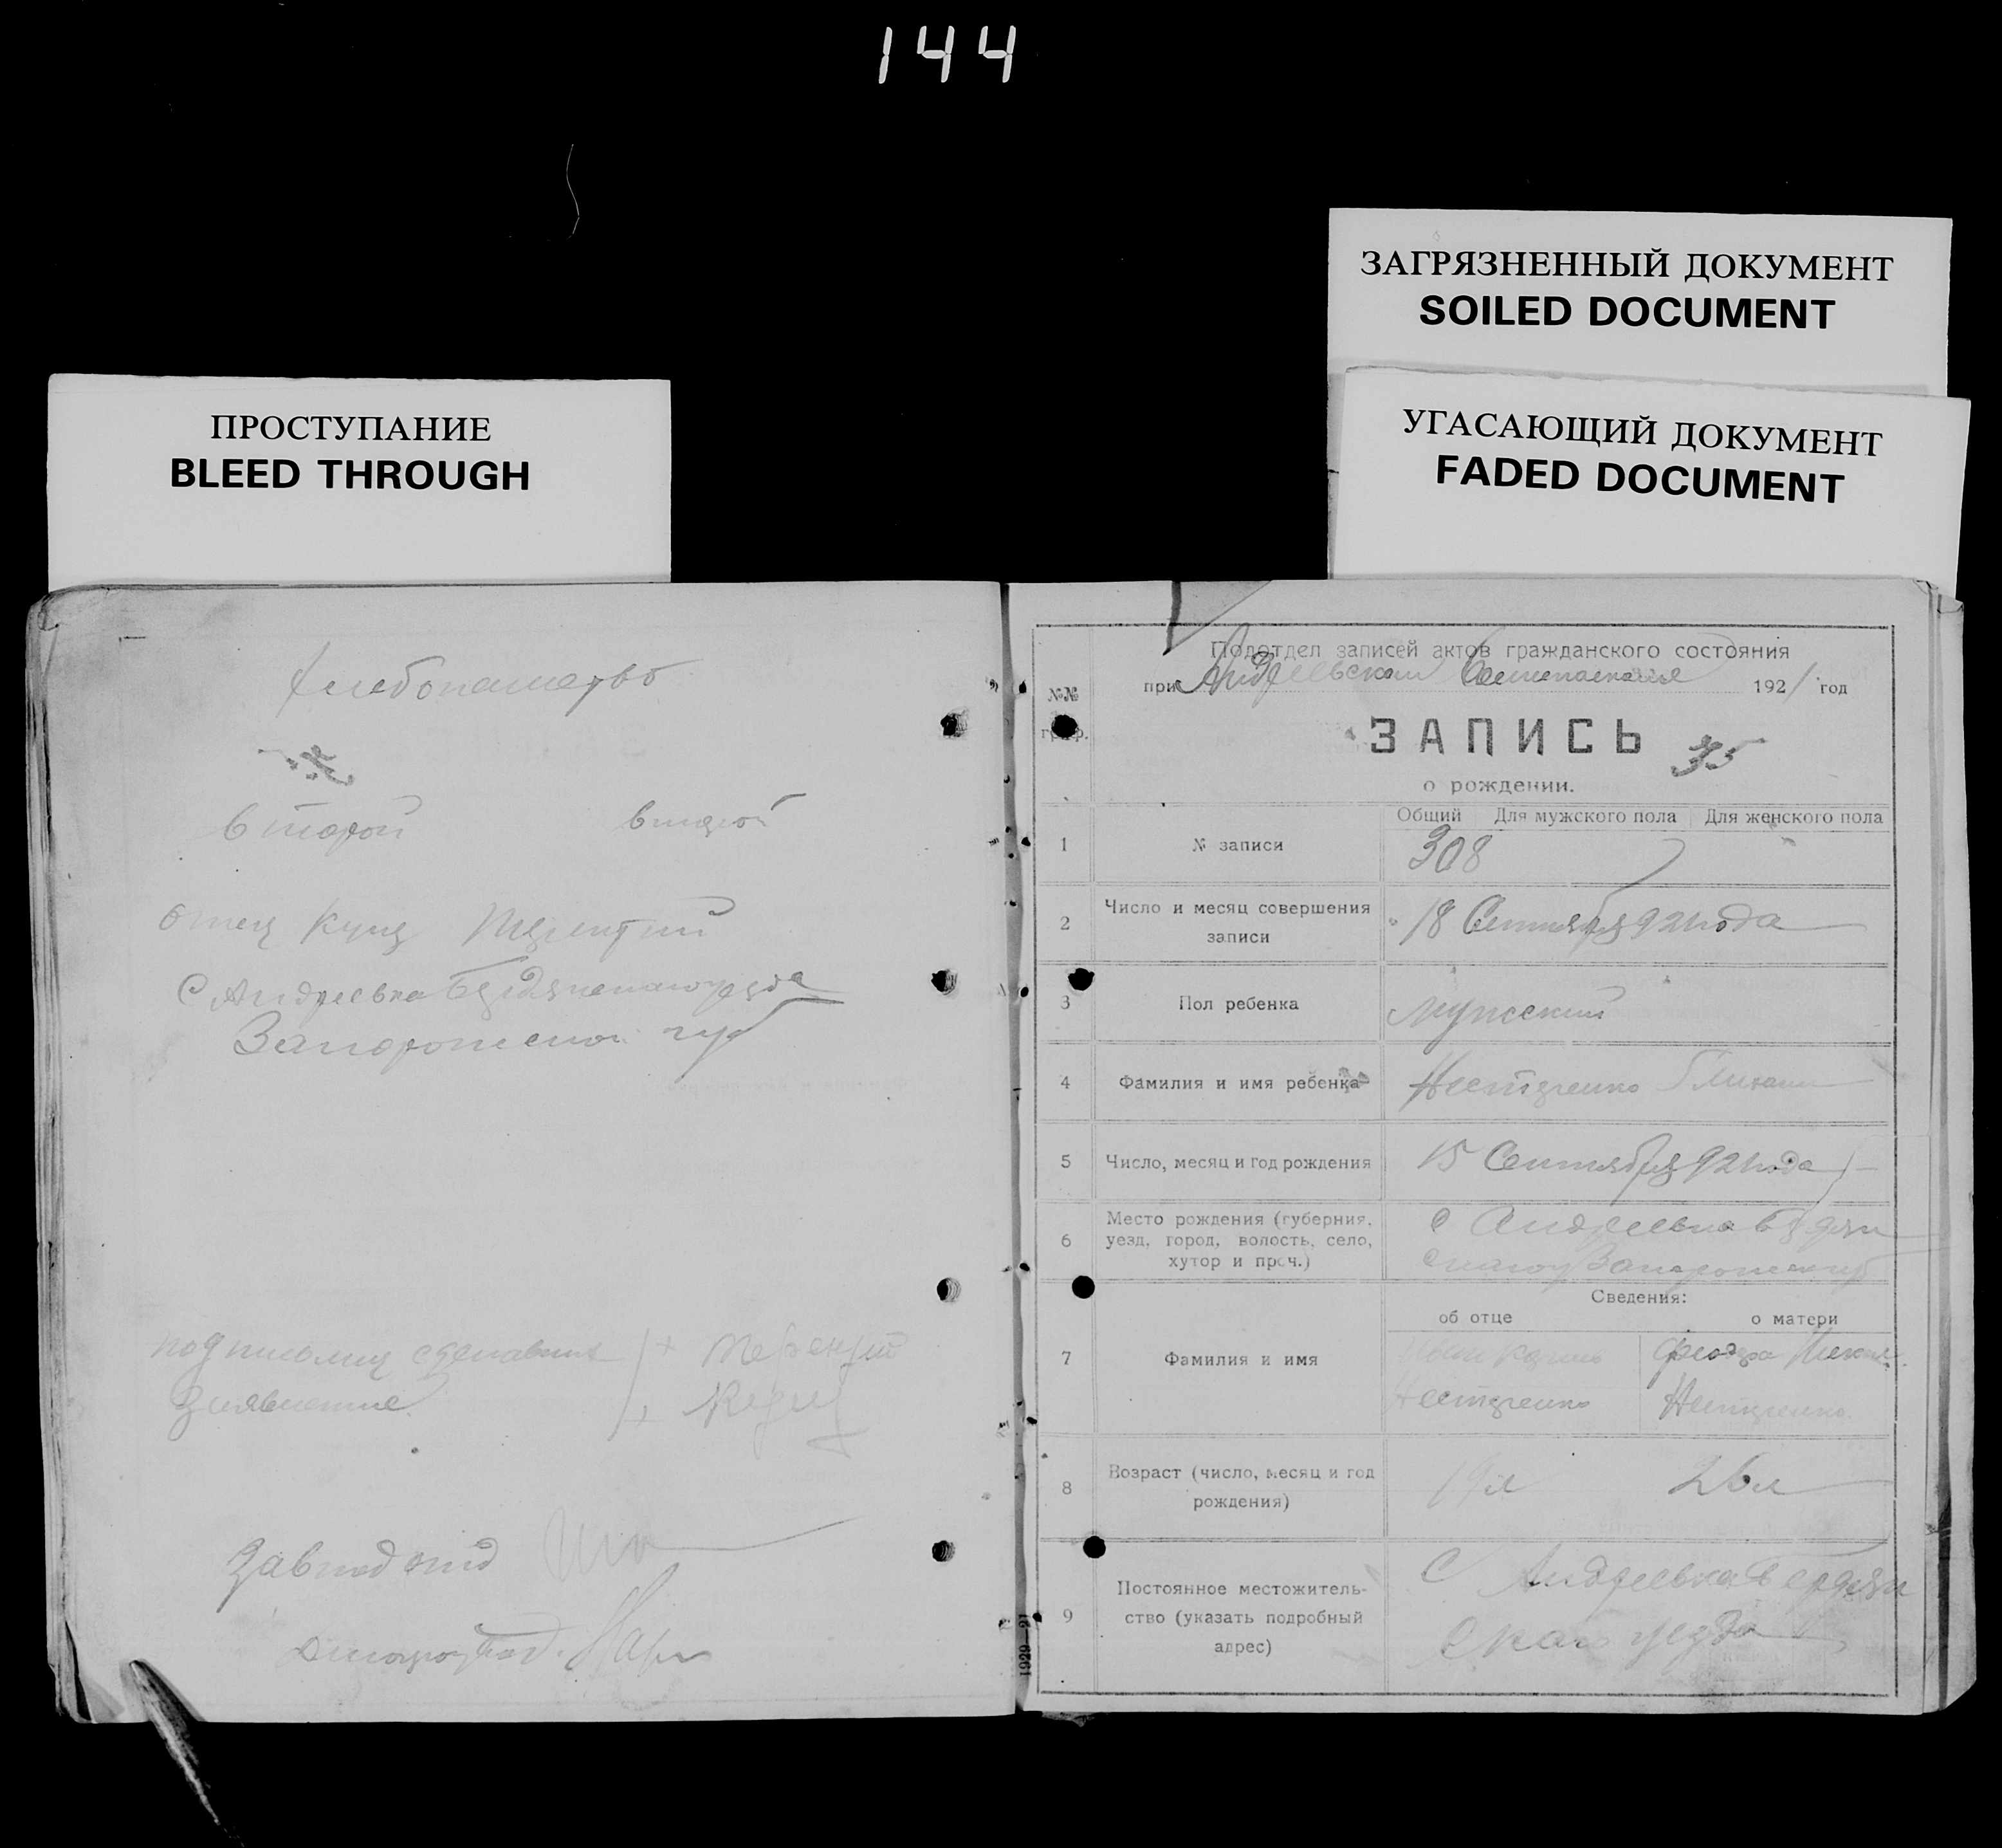 144
ЗАГРЯЗНЕННЫЙ ДОКУМЕНТ
SOILED DOCUMENT
УГАСАЮЩИЙ ДОКУМЕНТ
FADED DOCUMENT
ПРОСТУПАНИЕ
BLEED THROUGH
Хлебопашество
второй второй
отец Кущ Терентий
С Андреевка Бердянскаго уезда
Запорожской губ
подпись лиц сделавших + Терентий
заявление + Кущ
Завподотд
Подотдел записей актов гражданского состояния
при Андреевском 1921 год
№№
граф.
ЗАПИСЬ 35
о рождении.
Общий Для мужского пола Для женского пола
1 № записи 308
2 Число и месяц совершения
записи
18 Сентября 921 года
3 Пол ребенка мужский
4 Фамилия и имя ребенка Нестеренко
5 Число, месяц и год рождения 15 Сентября 921 года
6 Место рождения (губерния,
уезд, город, волость, село,
хутор и проч.)
с Андреевка Бердян
скаго у Запорожск губ
Сведения:
об отце о матери
7 Фамилия и имя
Феодора
Нестеренко Нестеренко
8 Возраст (число, месяц и год
рождения)
19 л 26 л
9 Постоянное местожитель-
ство (указать подробный
адрес)
С Андреевка Бердян
скаго уезда
1929—21